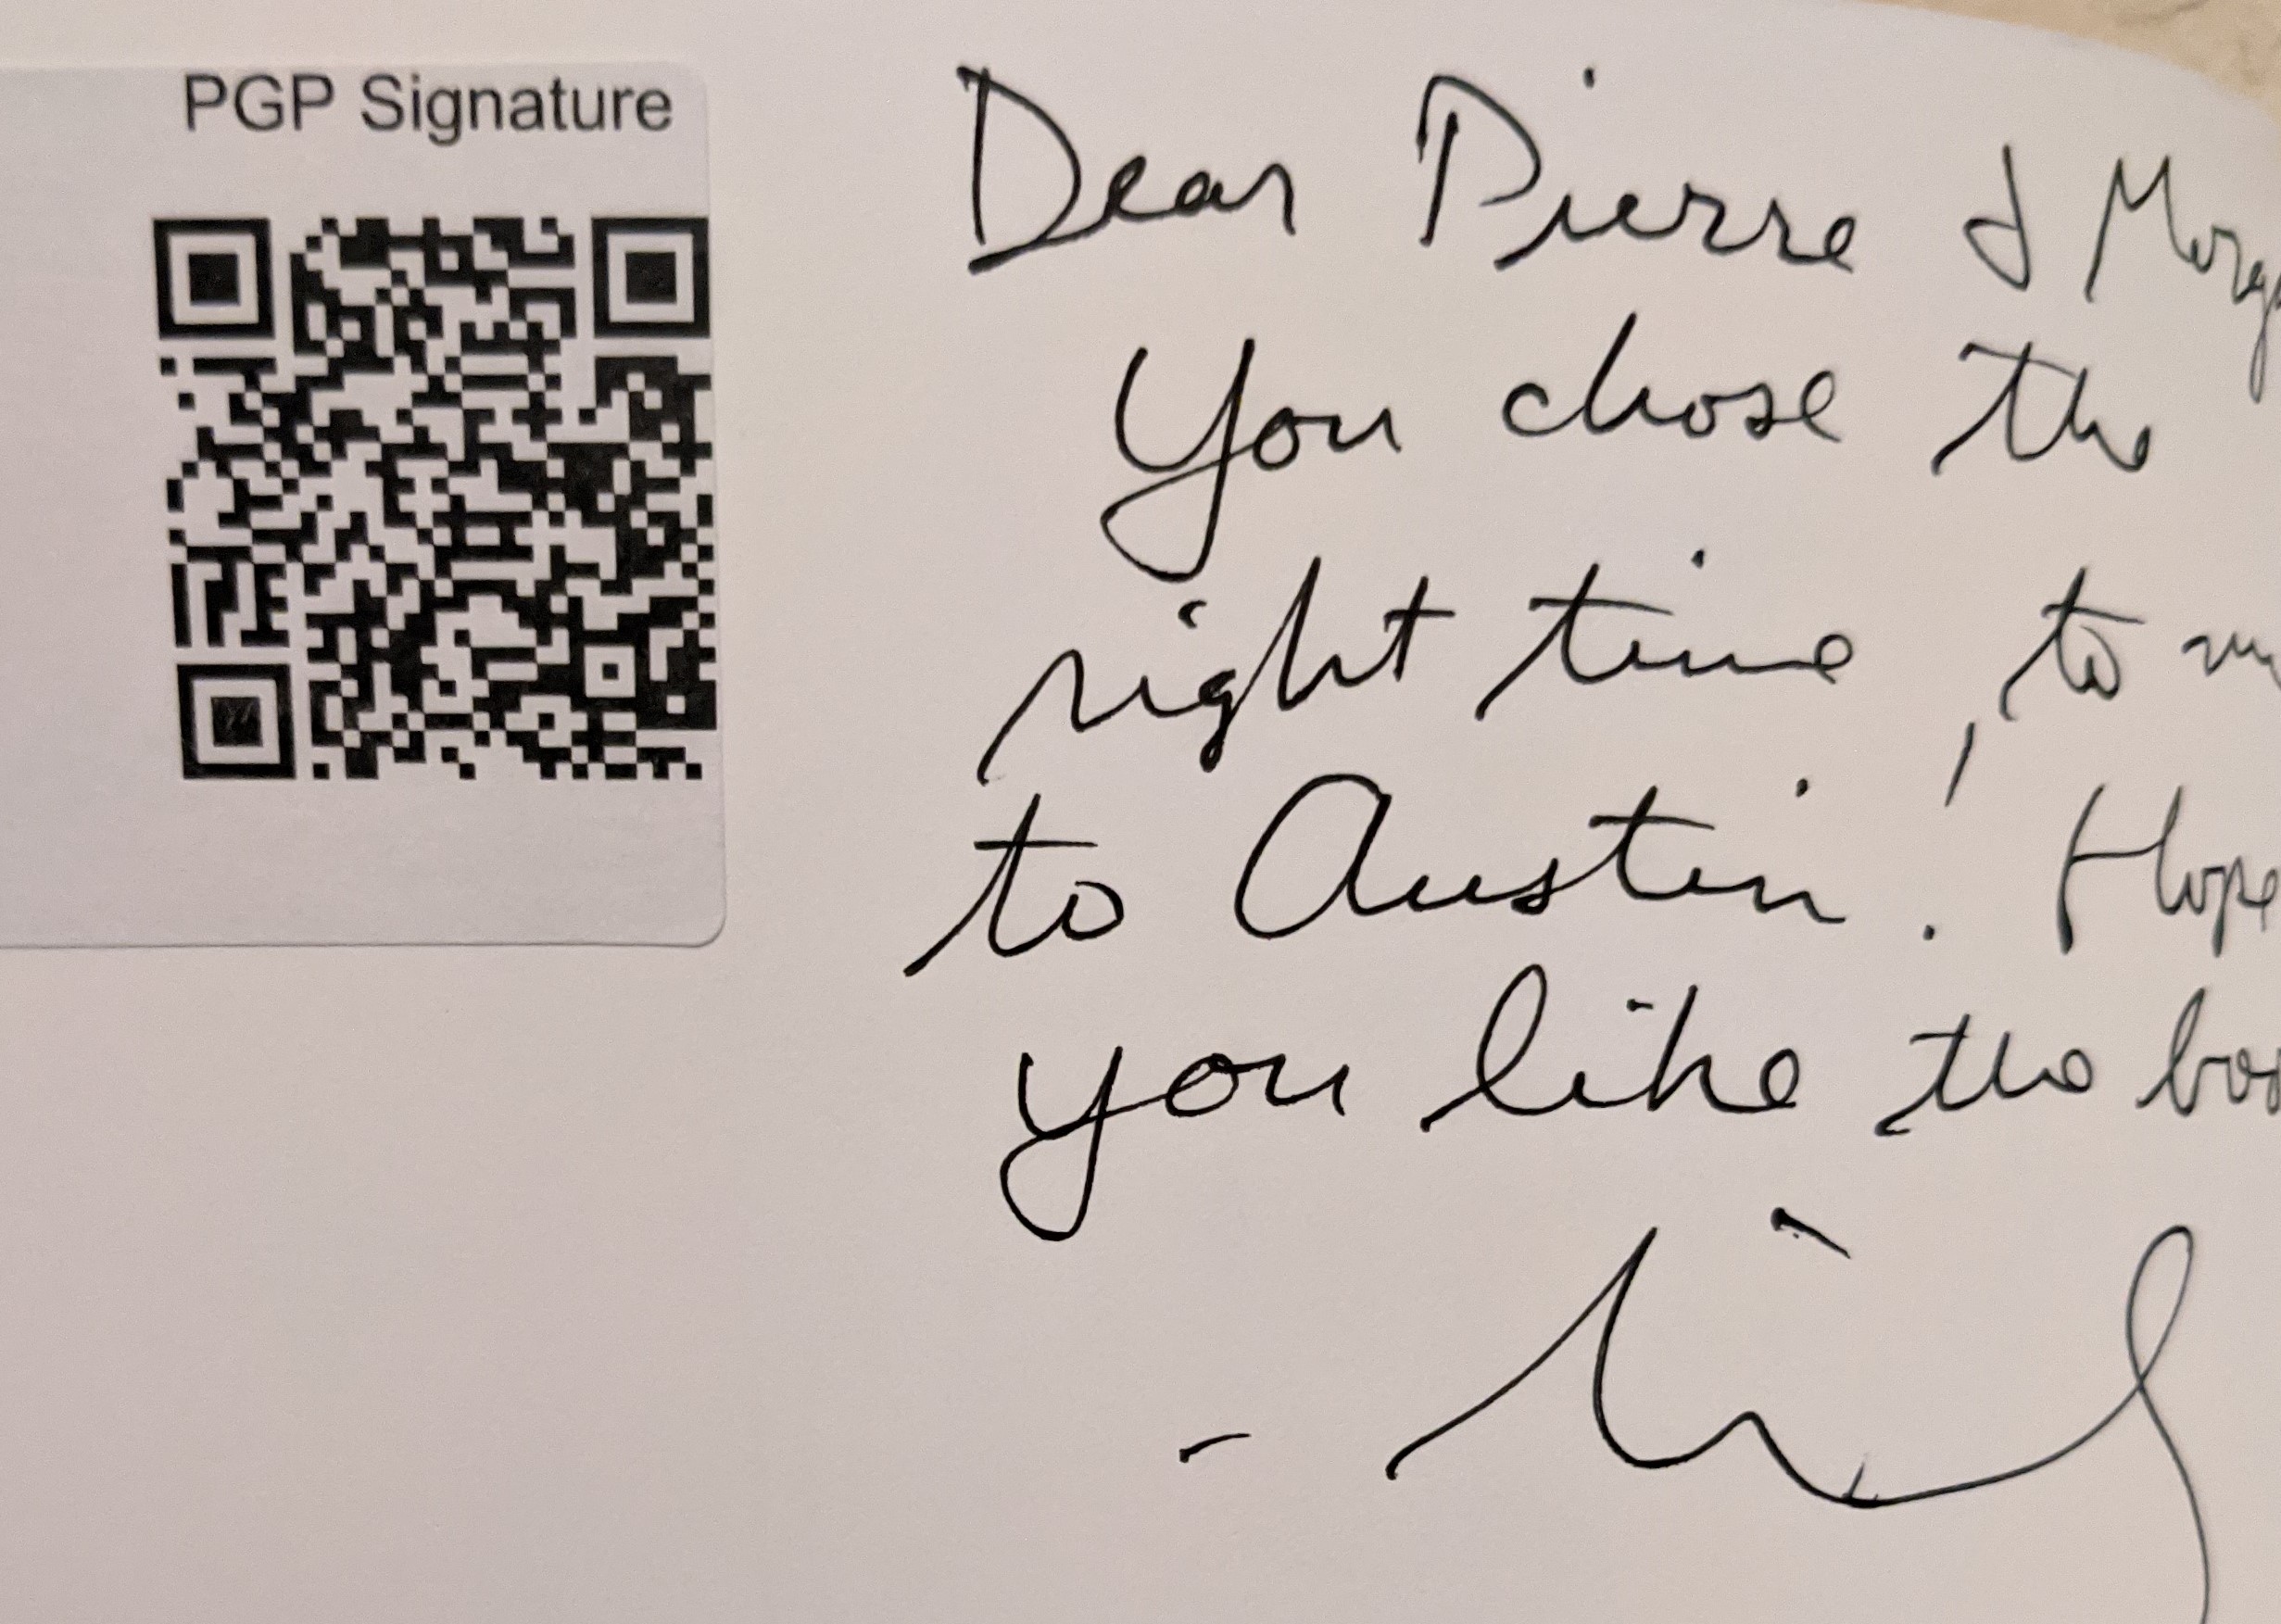 PGP Signature
Dear Pierre &
You chose the
right time, to
to Austin! Hope
you like the